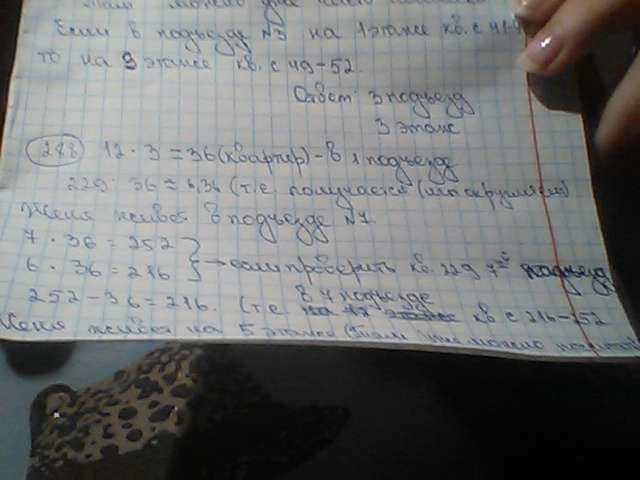 Там можно уже
Если в подъезде N3 на 1 этаже кв. с 41-4
то на 3 этаже кв. с 49-52
Ответ: 3 подъезд
3 этаж
288 12 · 3 = 36 (квартир) - в 1 подъезд
229 : 36 ≈ 6,36 (т.е получается (мы округляем)
Женя живёт в подъезде N7
7 · 36 = 252
6 · 36 = 216 } → если проверить кв. 229 7ой подъезд
252 - 36 = 216. (т.е в 7 подъезде кв с 216-252
Женя живёт на 5 этаже (там уже можно